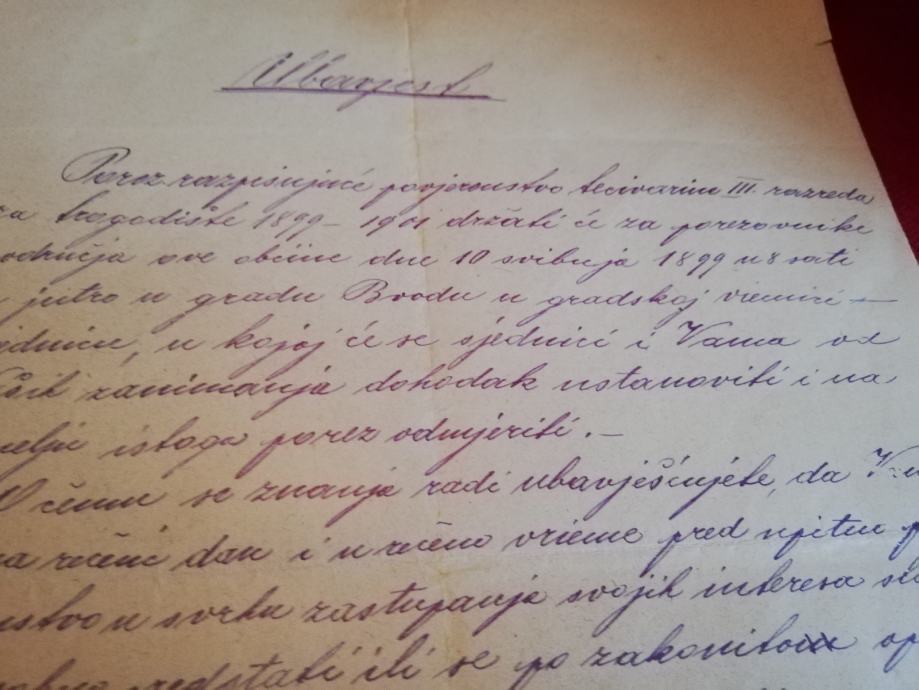 Ubavjest
Porez razpisujuće povjerenstvo tecivarinu III. razreda
za trogodište 1899 - 1901 držati će za porezovnike
područja ove obćine dne 10 svibnja 1899 u 8 sati
u jutro u gradu Brodu u gradskoj viećnici —
sjednicu, u kojoj će se sjednici i Vama od
zanimanja dohodak ustanoviti i na
temelju istoga porez odmjeriti. —
O čemu se znanja radi ubavješćujete, da
na rečeni dan i u rečeno vrieme pred upitno
u svrhu zastupanja svojih interesa
predstati ili se po zakonitom